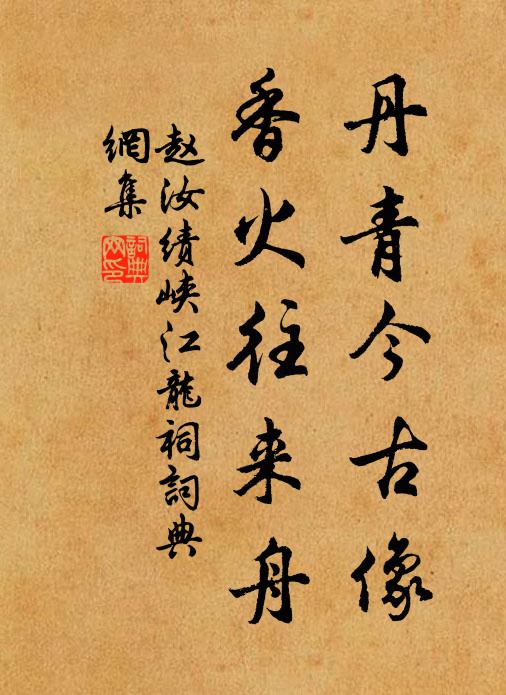 丹青今古像
香火往来舟
赵汝绩峡江龍祠詞典
網集
詞典网印